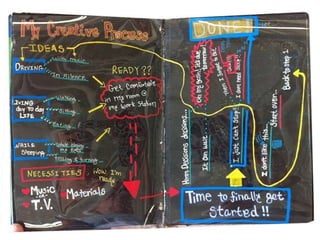 My Creative Process
IDEAS
DRIVING
with music
in silence
LIVING
day to day
LIFE
Eating
WHILE
Sleeping
NECESSITIES
Music
T.V.
Materials
READY??
Get Comfortable
in my room @
my work station
Now I'm
ready
DONE!
Hmm Decisions decisions...
I just can't stop
I don't like this...
Start over...
Back to step 1
Time to finally get
Started!!